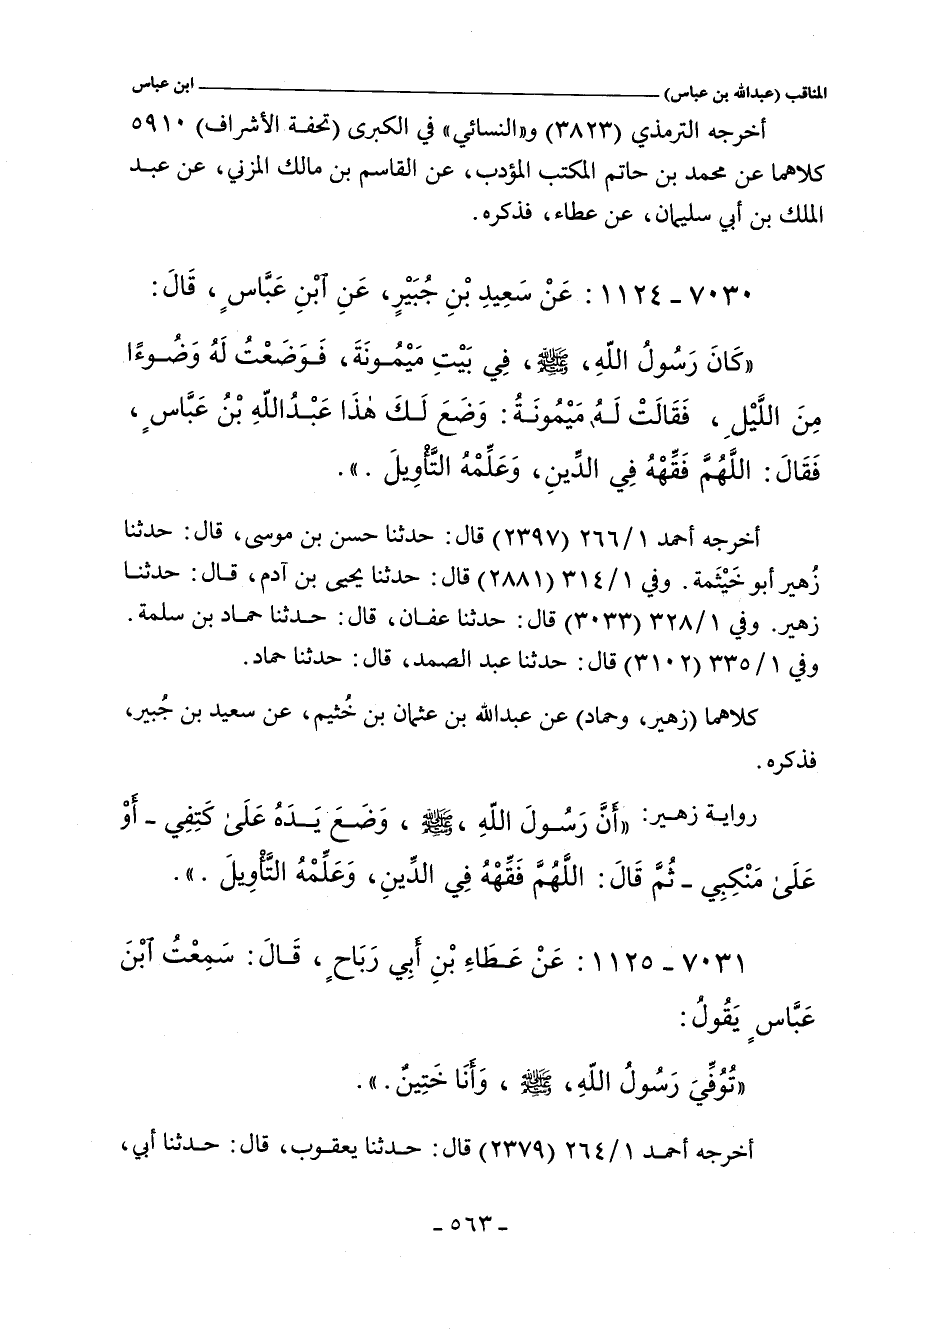 المناقب (عبدالله بن عباس) ـــــــــ ابن عباس
أخرجه الترمذي (٣٨٢٣) و«النسائي» في الكبرى (تحفة الأشراف) ٥٩١٠
كلاهما عن محمد بن حاتم المكتب المؤدب، عن القاسم بن مالك المزني، عن عبد
الملك بن أبي سليمان، عن عطاء، فذكره.
٧٠٣٠ ـ ١١٢٤ : عَنْ سَعِيدِ بْنِ جُبَيْرٍ، عَنِ ٱبْنِ عَبَّاسٍ، قَالَ:
«كَانَ رَسُولُ اللهِ، ﷺ، فِي بَيْتِ مَيْمُونَةَ، فَوَضَعْتُ لَهُ وَضُوءًا
مِنَ اللَّيْلِ، فَقَالَتْ لَهُ مَيْمُونَةُ: وَضَعَ لَكَ هٰذَا عَبْدُاللّهِ بْنُ عَبَّاسٍ،
فَقَالَ: اللَّهُمَّ فَقِّهْهُ فِي الدِّينِ، وَعَلِّمْهُ التَّأْوِيلَ.».
أخرجه أحمد ٢٦٦/١ (٢٣٩٧) قال: حدثنا حسن بن موسى، قال: حدثنا
زُهير أبو خَيْثَمة. وفي ٣١٤/١ (٢٨٨١) قال: حدثنا يحيى بن آدم، قال: حدثنا
زهير. وفي ٣٢٨/١ (٣٠٣٣) قال: حدثنا عفان، قال: حدثنا حماد بن سلمة.
وفي ٣٣٥/١ (٣١٠٢) قال: حدثنا عبد الصمد، قال: حدثنا حماد.
كلاهما (زهير، وحماد) عن عبدالله بن عثمان بن خُثيم، عن سعيد بن جُبير،
فذكره.
رواية زهير: «أَنَّ رَسُولَ اللهِ، ﷺ، وَضَعَ يَدَهُ عَلَىٰ كَتِفِي ـ أَوْ
عَلَىٰ مَنْكِبِي ـ ثُمَّ قَالَ: اللَّهُمَّ فَقِّهْهُ فِي الدِّينِ، وَعَلِّمْهُ التَّأْوِيلَ.».
٧٠٣١ ـ ١١٢٥ : عَنْ عَطَاءِ بْنِ أَبِي رَبَاحٍ، قَالَ: سَمِعْتُ ٱبْنَ
عَبَّاسٍ يَقُولُ:
«تُوُفِّيَ رَسُولُ اللهِ، ﷺ، وَأَنَا خَتِينٌ.».
أخرجه أحمد ٢٦٤/١ (٢٣٧٩) قال: حدثنا يعقوب، قال: حدثنا أبي،
ـ ٥٦٣ ـ